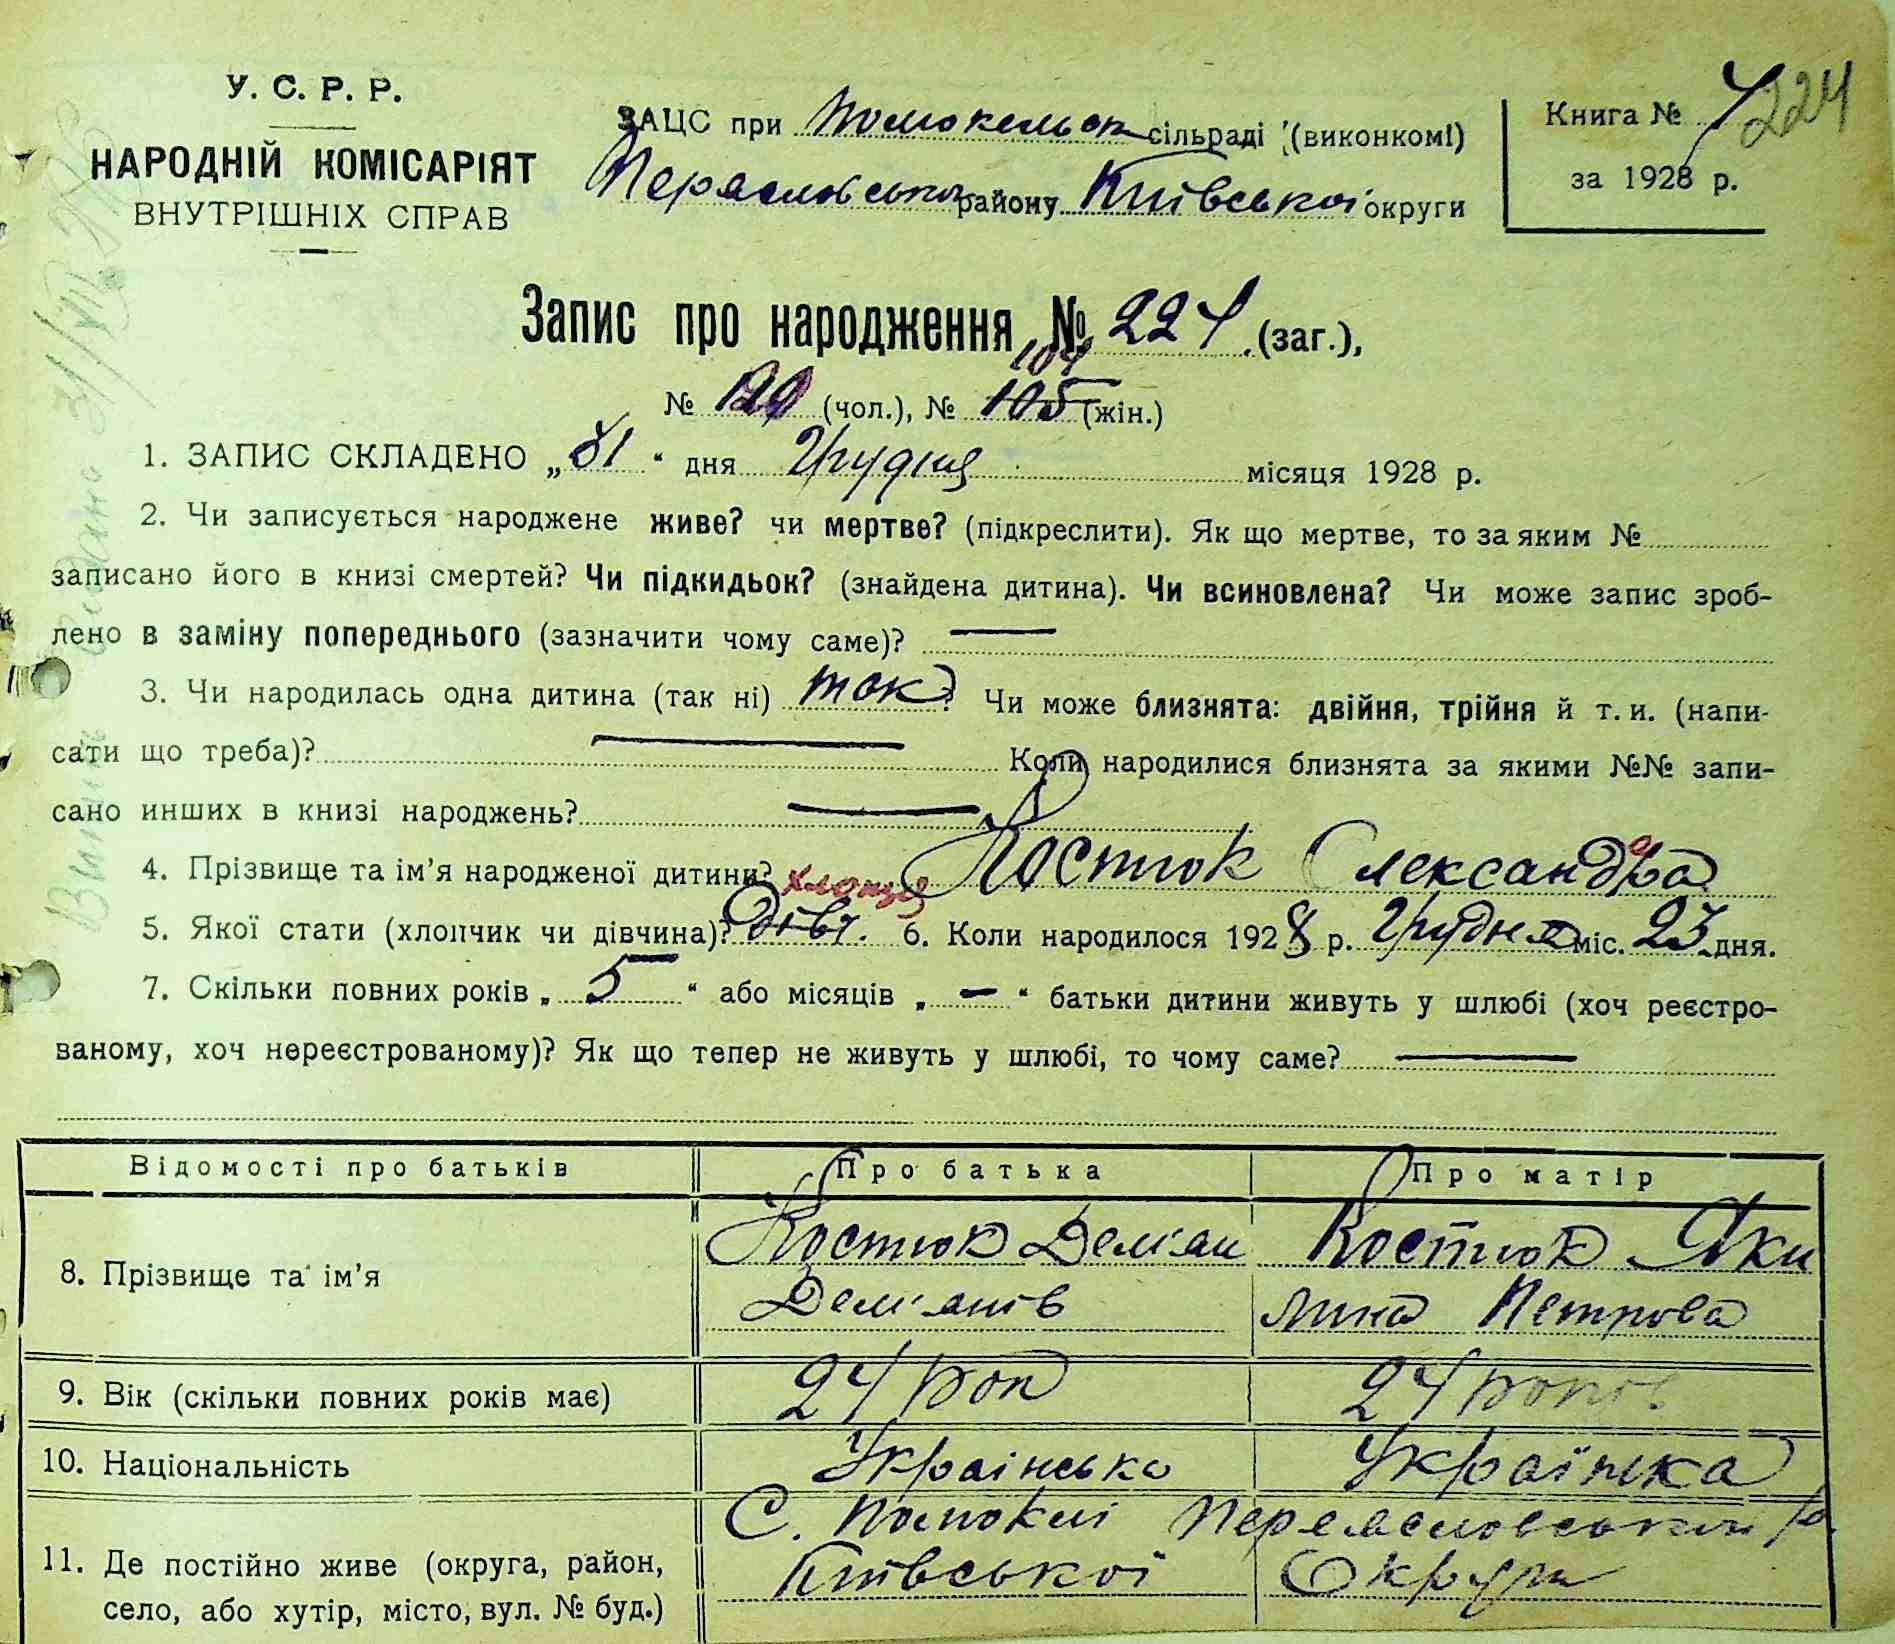 У. С. Р. Р.
НАРОДНІЙ КОМІСАРІЯТ
ВНУТРІШНІХ СПРАВ
ЗАЦС при Помокельск сільраді (виконкомі)
Переяславського району Київської округи
Книга №
224
за 1928 р.
Запис про народження № 224 (заг.),
104
№ 120 (чол.), № 105 (жін.)
1. ЗАПИС СКЛАДЕНО „31“ дня Грудня місяця 1928 р.
2. Чи записується народжене живе? чи мертве? (підкреслити). Як що мертве, то за яким №
записано його в книзі смертей? Чи підкидьок? (знайдена дитина). Чи всиновлена? Чи може запис зроб-
лено в заміну попереднього (зазначити чому саме)? —
3. Чи народилась одна дитина (так ні) так? Чи може близнята: двійня, трійня й т. и. (напи-
сати що треба)? — Коли народилися близнята за якими №№ запи-
сано инших в книзі народжень? —
4. Прізвище та ім’я народженої дитини? Костюк Олександра
хлопця
5. Якої стати (хлопчик чи дівчина)? дівч. 6. Коли народилося 1928 р. Грудня міс. 23 дня.
7. Скільки повних років „5“ або місяців „—“ батьки дитини живуть у шлюбі (хоч реєстро-
ваному, хоч нереєстрованому)? Як що тепер не живуть у шлюбі, то чому саме? —
Відомості про батьків Про батька Про матір
8. Прізвище та ім’я Костюк Дем'ян Костюк Яки
Дем'янів лина Петрова
9. Вік (скільки повних років має) 24 рок 24 років
10. Національність Українська Українка
11. Де постійно живе (округа, район, С. Помоклі Переяславського р.
село, або хутір, місто, вул. № буд.) Київської Округи